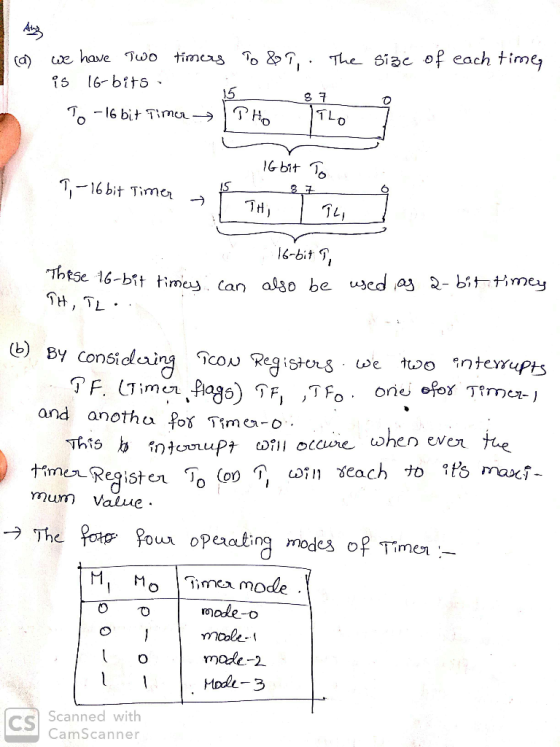 Ans
(a) we have Two timers T0 & T1. The size of each timer
is 16-bits.
15 8 7 0
T0 -16 bit Timer → TH0 TL0
16 bit T0
T1 -16 bit Timer → 15 8 7 0
TH1 TL1
16-bit T1
These 16-bit timers can also be used as 2-bit timers
TH, TL.
(b) By considering TCON Registers we two interrupts
TF. (Timer flags) TF1, TF0. one for Timer-1
and another for Timer-0.
This interrupt will occure when ever the
timer Register T0 (or) T1 will reach to it's maxi-
mum value.
→ The four operating modes of Timer :-
M1 M0 Timer mode.
0 0 mode-0
0 1 mode-1
1 0 mode-2
1 1 Mode-3
CS Scanned with
CamScanner